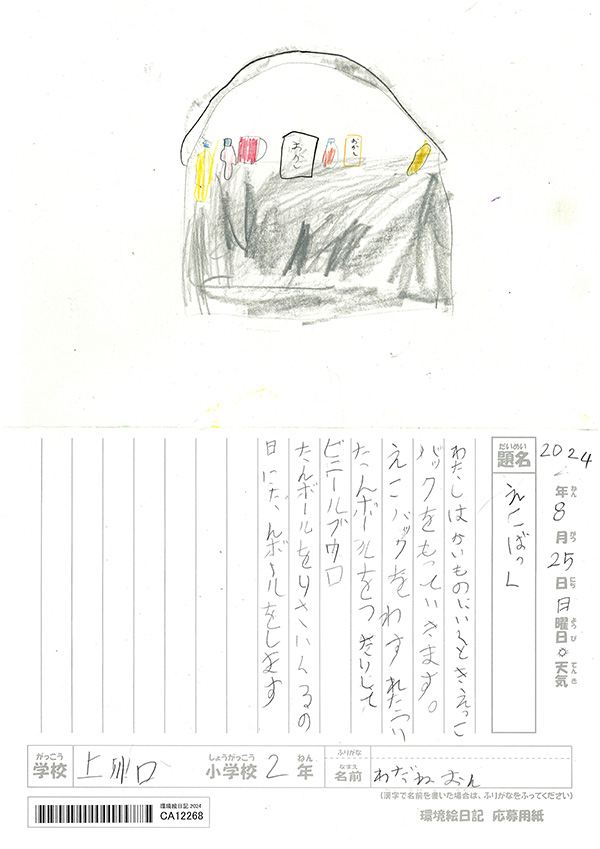 おかし
おかし
2024年8月25日日曜日☼天気
ねん
がつ
にち
ようび
てんき
だいめい
題名
えこばっく
わたしはかいものにいくときえっこ
バックをもっていきます。
えこバックをわすれたら
たんボールをつかたりして
ビニールブウロ
たんボールをりさいくるの
日にだんボールをします
がっこう
学校
上川口
しょうがっこう
小学校
2
ねん
年
ふりがな
なまえ
名前
わだねおん
(漢字で名前を書いた場合は、ふりがなをふってください)
環境絵日記 2024
CA12268
環境絵日記 応募用紙